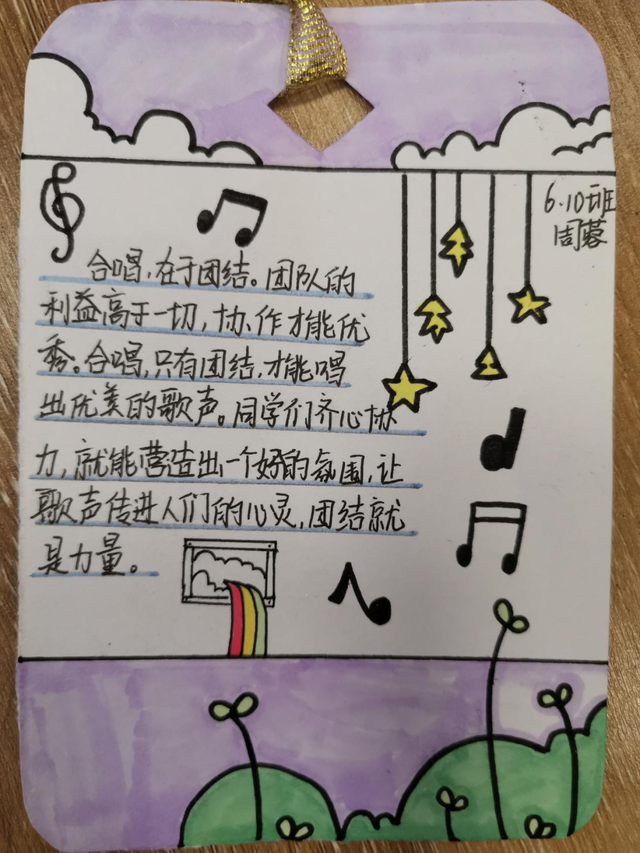 6.10班
周蓉
合唱,在于团结。团队的
利益高于一切,协作才能优
秀。合唱,只有团结,才能唱
出优美的歌声。同学们齐心协
力,就能营造出一个好的氛围,让
歌声传进人们的心灵,团结就
是力量。